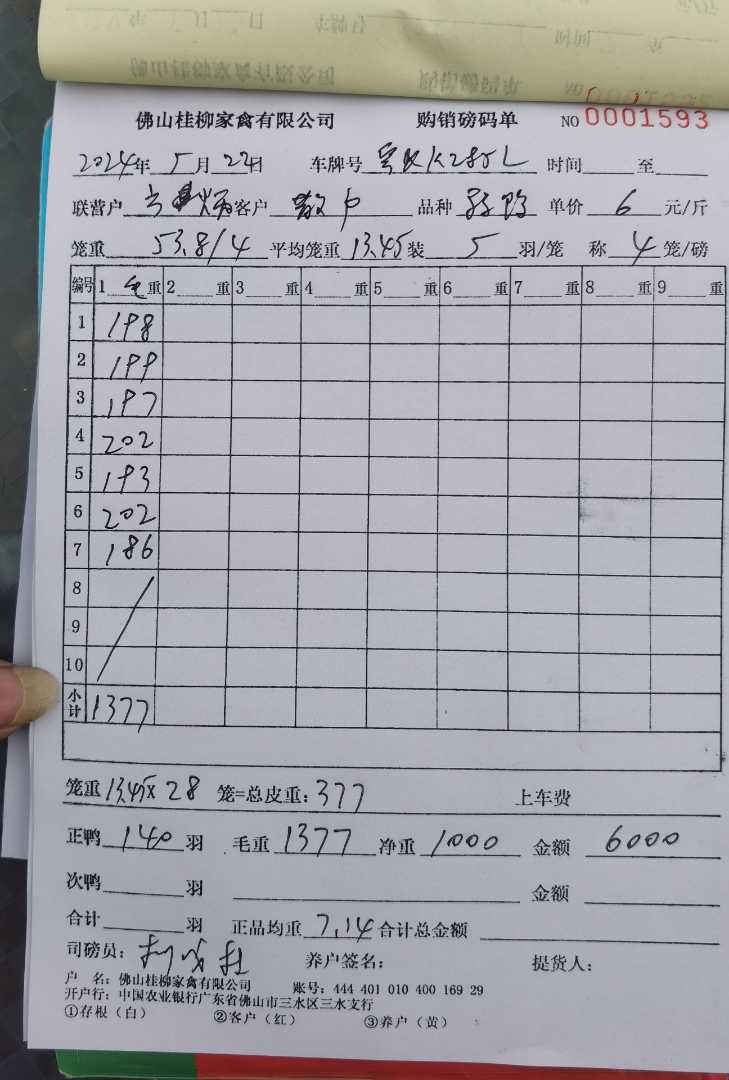 佛山桂柳家禽有限公司 购销磅码单 NO 0001593
2024年 5月 22日 车牌号 K285L 时间 至
联营户 客户 散户 品种 鸭 单价 6 元/斤
笼重 53.8/4 平均笼重 13.45 装 5 羽/笼 称 4 笼/磅
编号 1 毛 重 2 重 3 重 4 重 5 重 6 重 7 重 8 重 9 重
1 198
2 199
3 197
4 202
5 193
6 202
7 186
8
9
10
小计 1377
笼重 13.45 x 28 笼=总皮重: 377 上车费
正鸭 140 羽 毛重 1377 净重 1000 金额 6000
次鸭 羽 金额
合计 羽 正品均重 7.14 合计总金额
司磅员: 养户签名: 提货人:
户 名: 佛山桂柳家禽有限公司 账号: 444 401 010 400 169 29
开户行: 中国农业银行广东省佛山市三水区三水支行
①存根(白) ②客户(红) ③养户(黄)